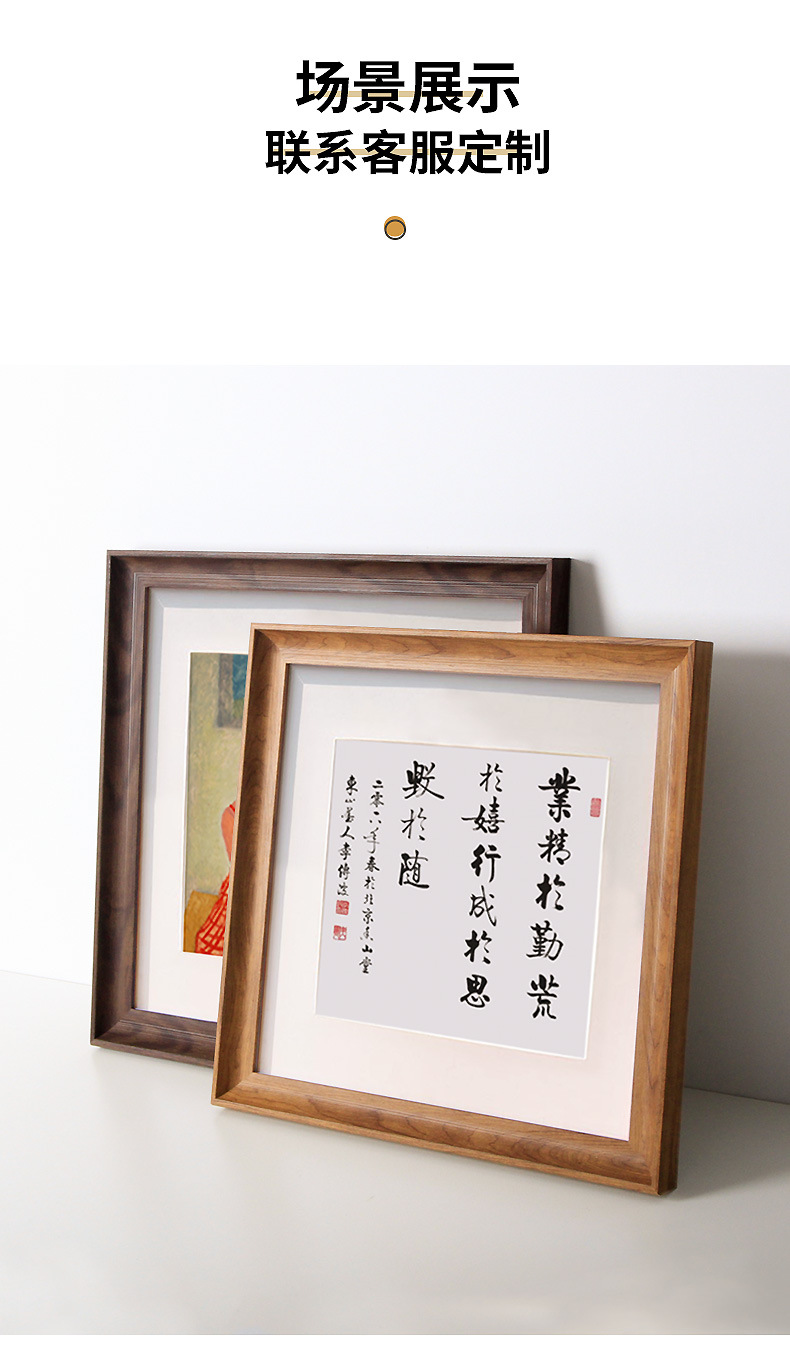 场景展示
联系客服定制
業精於勤荒
於嬉行成於思
毀於随
二零一八年春於北京
山堂
東山
人李傳波